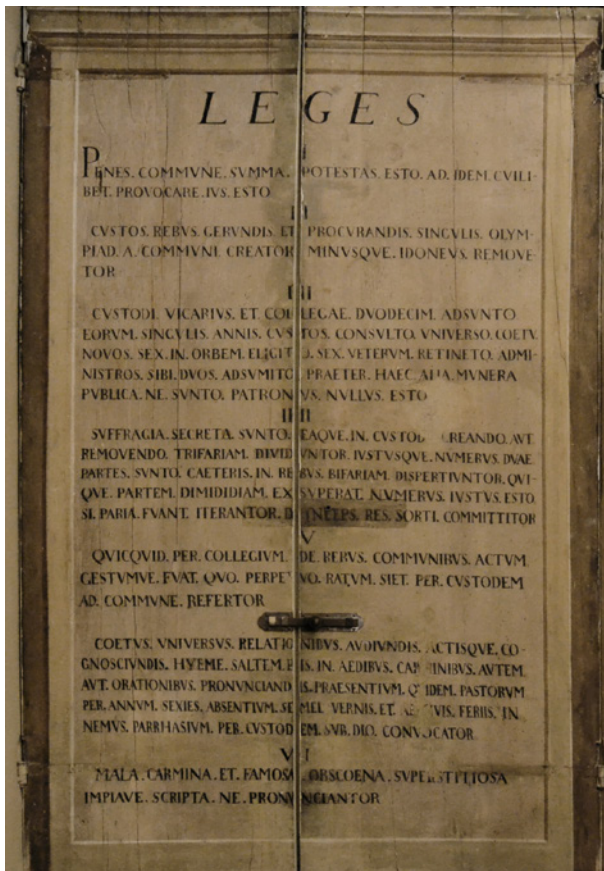 LEGES
I
PENES. COMMVNE. SVMMA. POTESTAS. ESTO. AD. IDEM. CVILI-
BET. PROVOCARE. IVS. ESTO
II
CVSTOS. REBVS. GERVNDIS. ET PROCVRANDIS. SINGVLIS. OLYM-
PIAD. A. COMMVNI. CREATOR MINVSQVE. IDONEVS. REMOVE-
TOR
III
CVSTODI. VICARIVS. ET COLLEGAE. DVODECIM. ADSVNTO
EORVM. SINGVLIS. ANNIS. CVSTOS. CONSVLTO. VNIVERSO. COETV
NOVOS. SEX. IN. ORBEM. ELIGITO. SEX. VETERVM. RETINETO. ADMI-
NISTROS. SIBI. DVOS. ADSVMITO PRAETER. HAEC ALIA. MVNERA
PVBLICA. NE. SVNTO. PATRONVS. NVLLVS. ESTO
IIII
SVFFRAGIA. SECRETA. SVNTO. EAQVE. IN. CREANDO. AVT
REMOVENDO. TRIFARIAM. DIVIDVNTOR. IVSTVSQVE. NVMERVS. DVAE
PARTES. SVNTO. CAETERIS. IN. REBVS. BIFARIAM. DISPERTIVNTOR. QVI-
QVE. PARTEM. DIMIDIDIAM. EXSVPERAT. NVMERVS. IVSTVS. ESTO
SI. PARIA. FVANT. ITERANTOR. DEINCEPS. RES. SORTI. COMMITTITOR
V
QVICQVID. PER. COLLEGIVM. DE. REBVS. COMMVNIBVS. ACTVM
GESTVMVE. FVAT. QVO. PERPETVO. RATVM. SIET. PER. CVSTODEM
AD. COMMVNE. REFERTOR
COETVS. VNIVERSVS. RELATIONIBVS. AVDIVNDIS. ACTISQVE. CO-
GNOSCIVNDIS. HYEME. SALTEM. BIS. IN. AEDIBVS. CARMINIBVS. AVTEM
AVT. ORATIONIBVS. PRONVNCIANDIS. PRAESENTIVM. QVIDEM. PASTORVM
PER. ANNVM. SEXIES. ABSENTIVM. SEMEL. VERNIS. ET. FERIIS. IN
NEMVS. PARRHASIVM. PER. CVSTODEM. SVB. DIO. CONVOCATOR
VI
MALA. CARMINA. ET. FAMOSA. OBSCOENA. SVPERSTITIOSA
IMPIAVE. SCRIPTA. NE. PRONVNCIANTOR